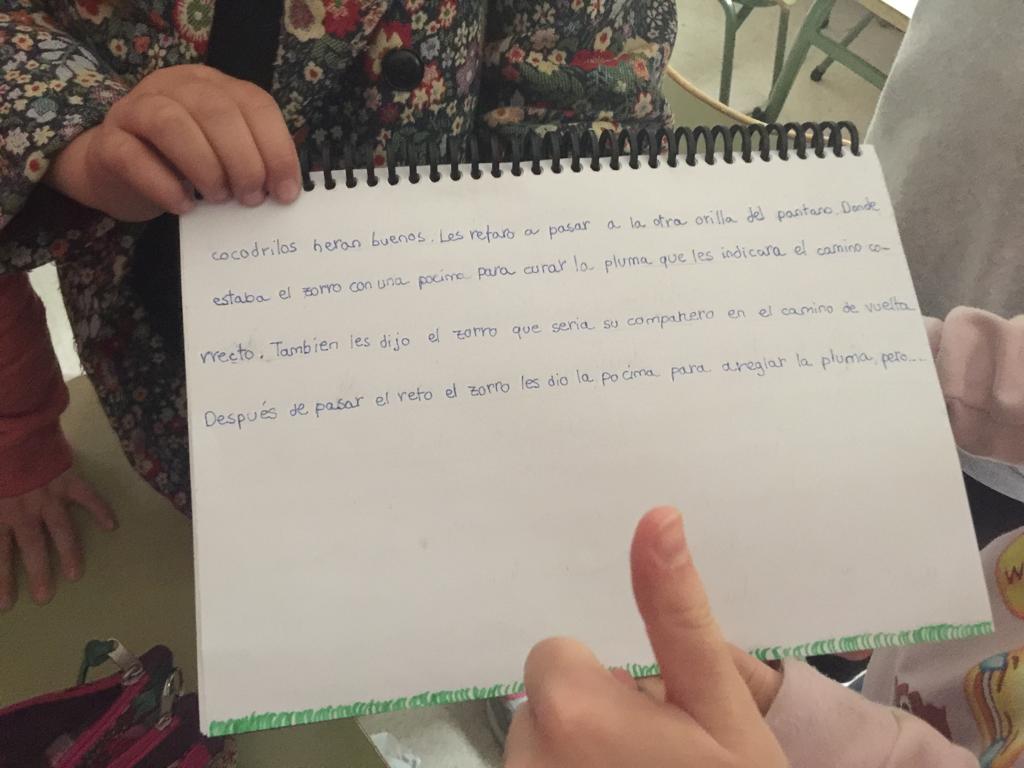 cocodrilos heran buenos. Les retaro a pasar a la otra orilla del pantano. Donde
estaba el zorro con una pocima para curar la pluma que les indicara el camino co-
rrecto. Tambien les dijo el zorro que seria su compañero en el camino de vuelta
Después de pasar el reto el zorro les dio la pocima para arreglar la pluma, pero....